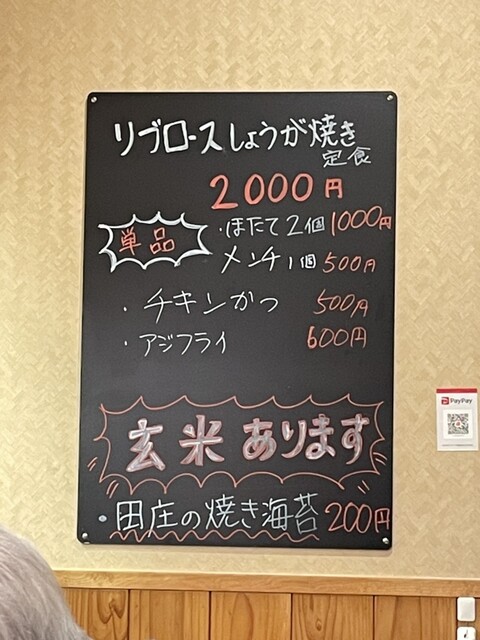 リブロースしょうが焼き
定食
2000円
単品
・ほたて2個1000円
メンチ1個500円
・チキンかつ 500円
・アジフライ 600円
玄米あります
・田庄の焼き海苔200円
PayPay